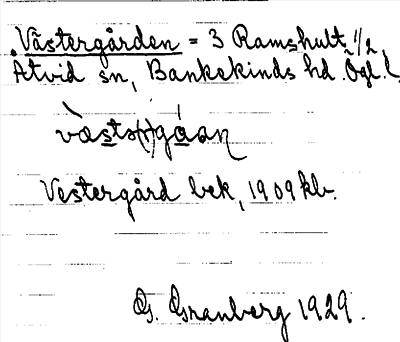 Västergården = 3 Ramshult 1/2,
Åtvid sn, Bankekinds hd. Ögl. l.
väsṭə(r)gå̱an
Vestergård bek, 1909 kb.
G. Granberg 1929.